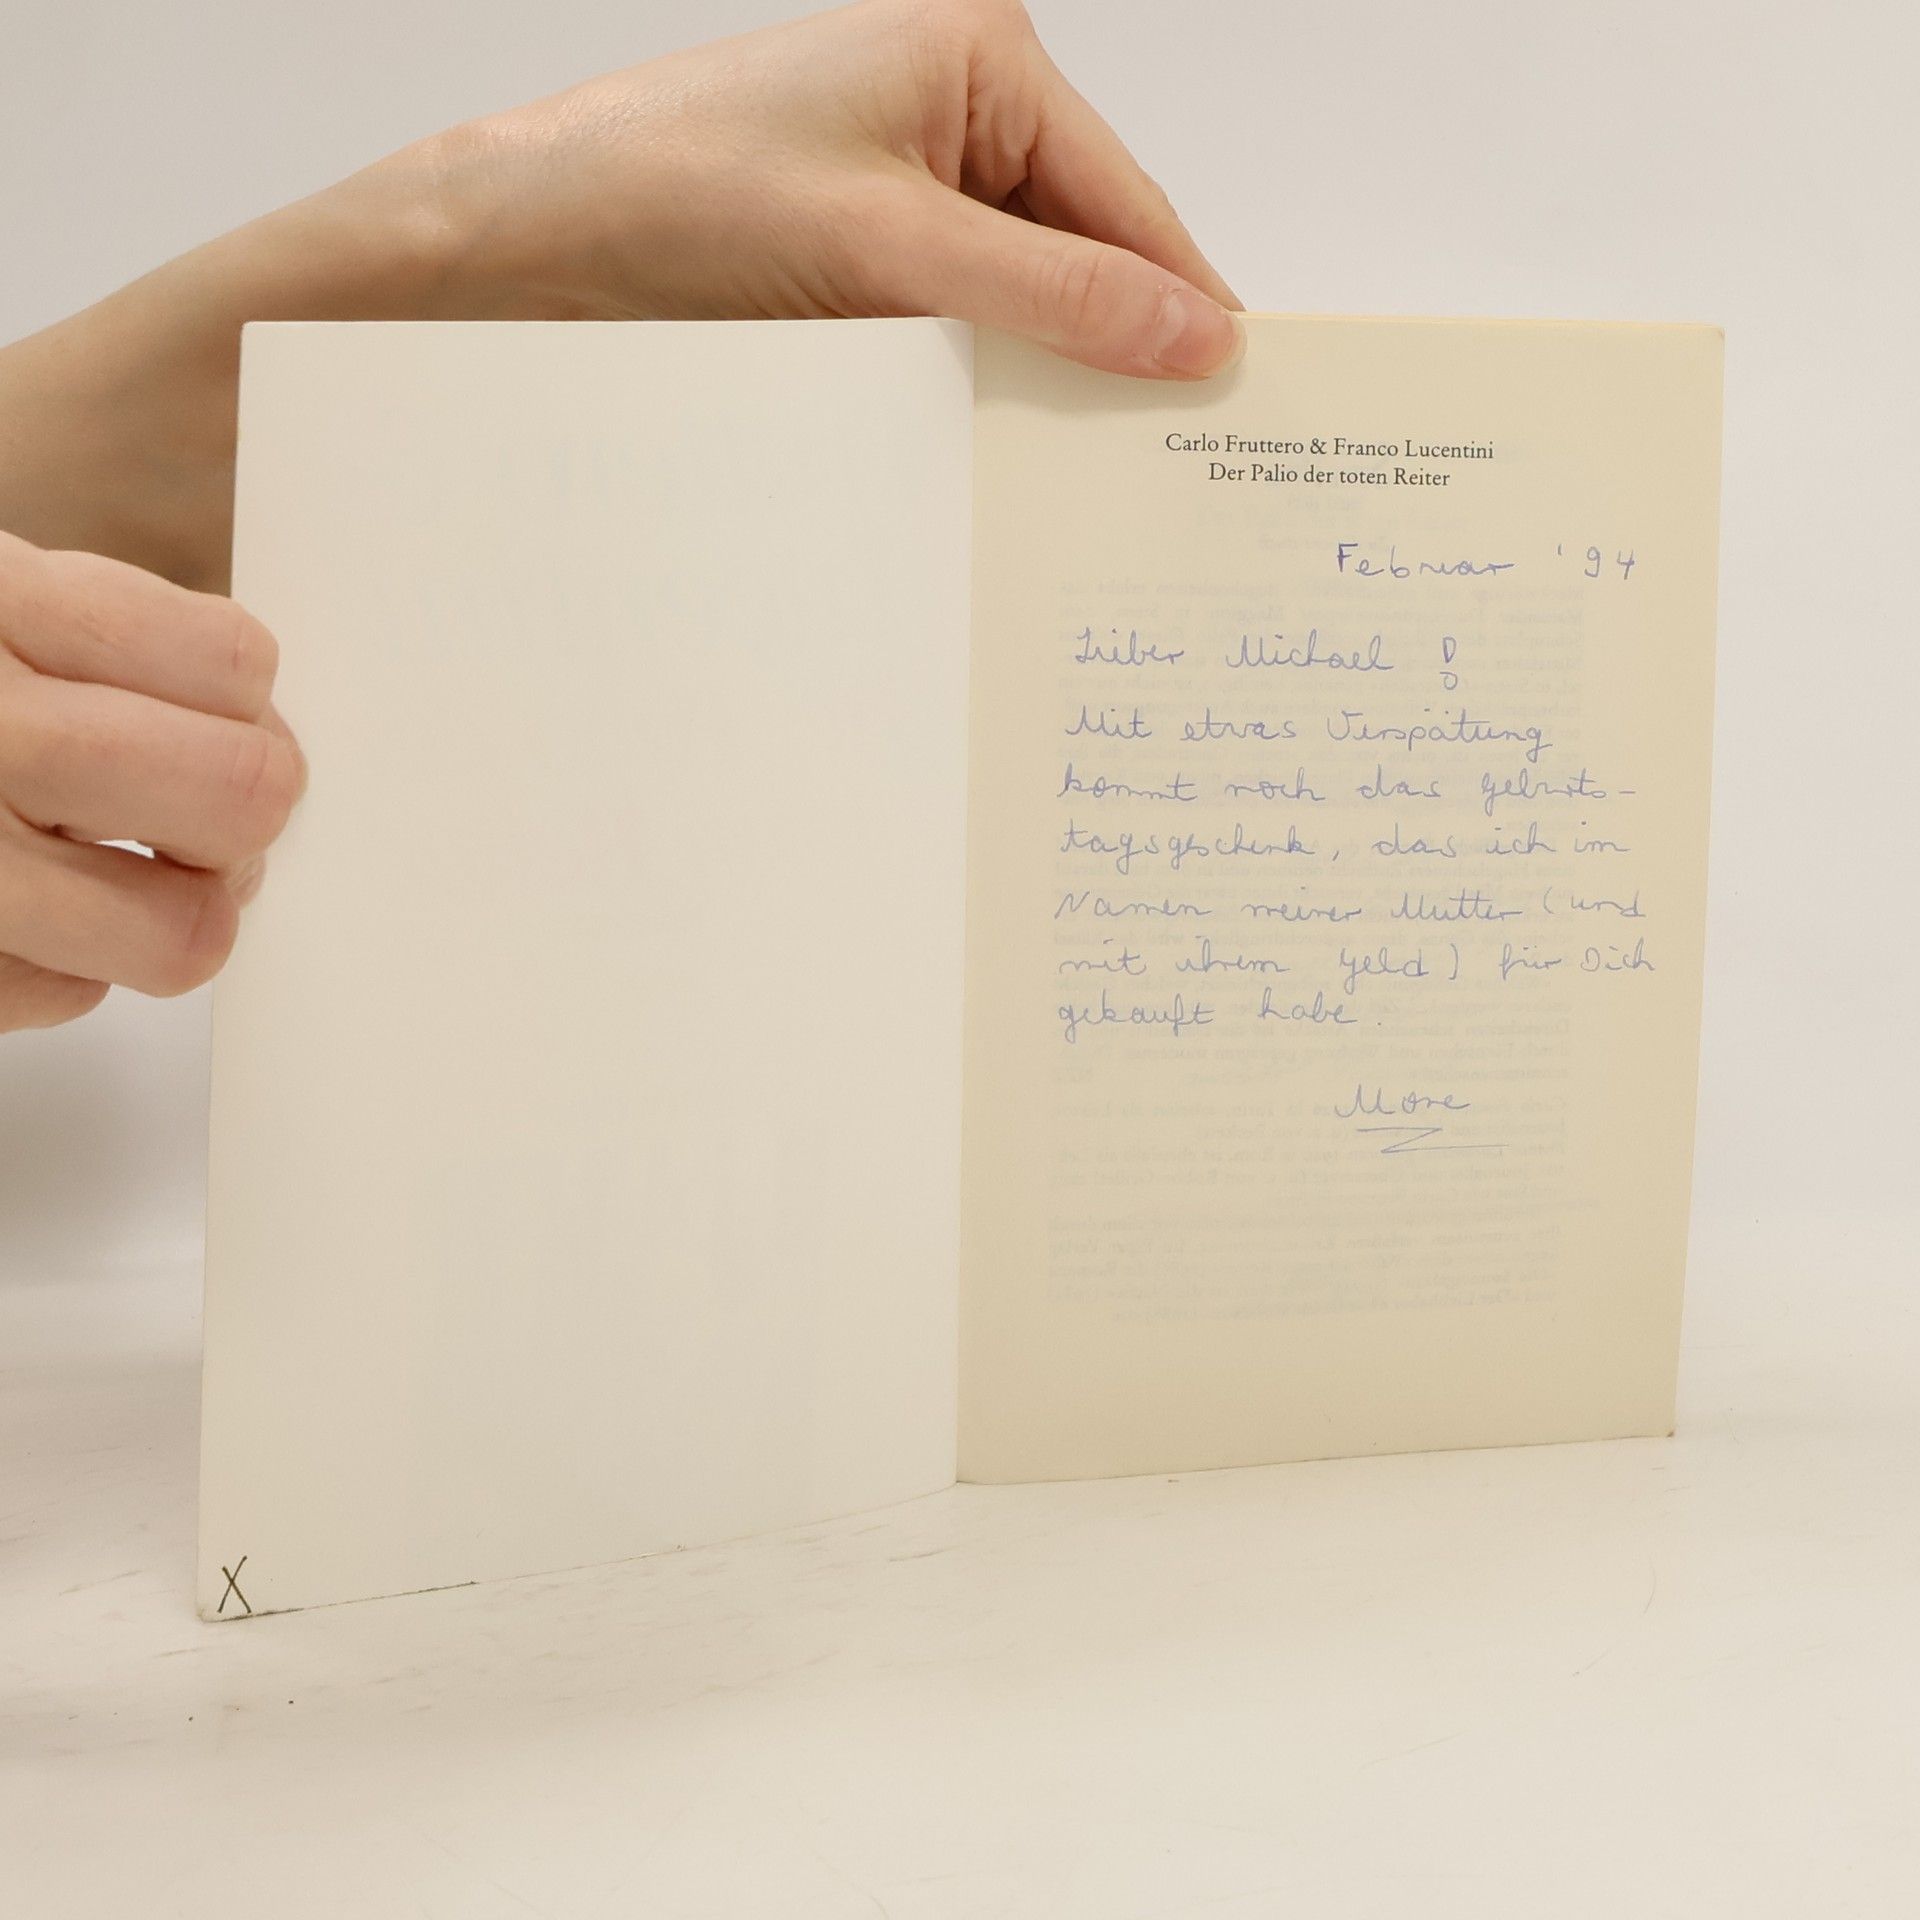 Carlo Fruttero & Franco Lucentini
Der Palio der toten Reiter
Februar '94
Lieber Michael !
Mit etwas Verspätung
kommt noch das Geburts-
tagsgeschenk, das ich im
Namen meiner Mutter (und
mit ihrem Geld) für Dich
gekauft habe.
X